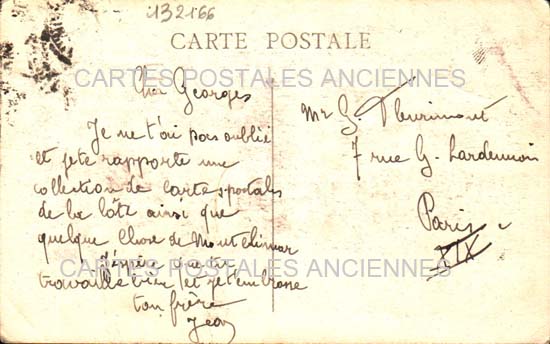 132166
CARTE POSTALE
CARTES POSTALES ANCIENNES
Cher Georges
Je ne t'ai pas oublié
et je te rapporte une
collection de cartes postales
de la Côte ainsi que
quelque chose de Montélimar
J'espère que tu
travailles bien et je t'embrasse
ton frère
Jean
Mr G. Fleurimont
7 rue G. Lardennois
Paris
XIX
CARTES POSTALES ANCIENNES